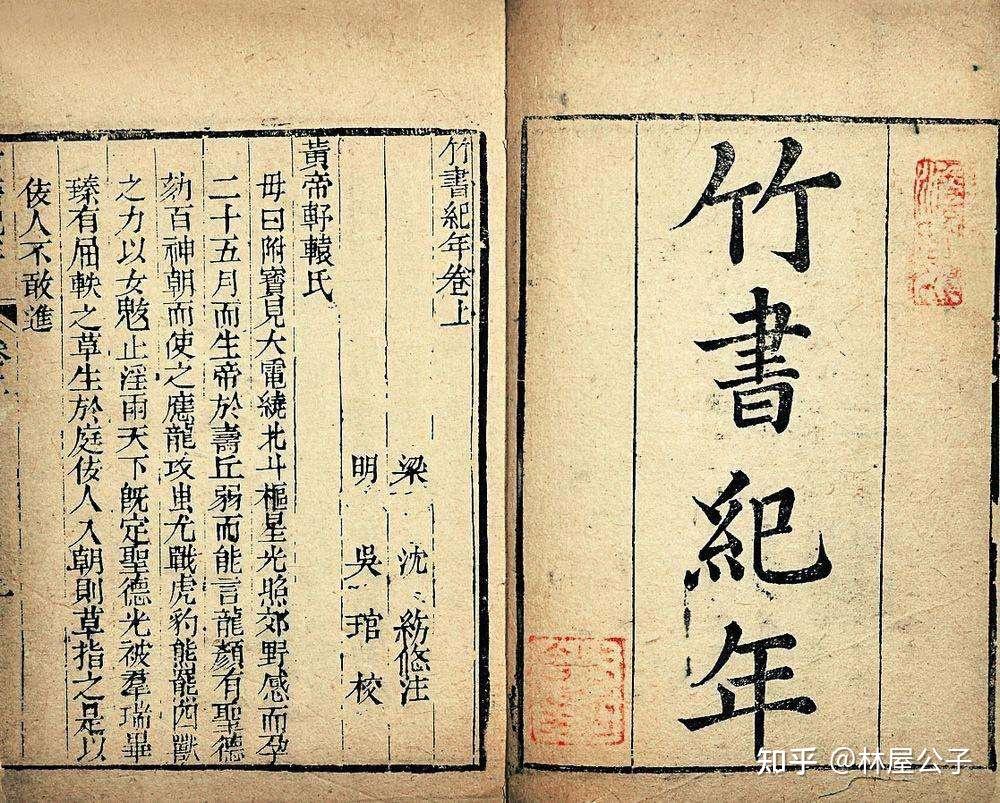 竹書紀年
竹書紀年卷上
梁 沈 約 悠注
明 吳 琯 校
黃帝軒轅氏
母曰附寶見大電繞北斗樞星光照郊野感而孕
二十五月而生帝於壽丘弱而能言龍顏有聖德
劾百神朝而使之應龍攻蚩尤戰虎豹熊羆四獸
之力以女魃止淫雨天下既定聖德光被羣瑞畢
瑧有屈軼之草生於庭佞人入朝則草指之是以
佞人不敢進
知乎 @林屋公子